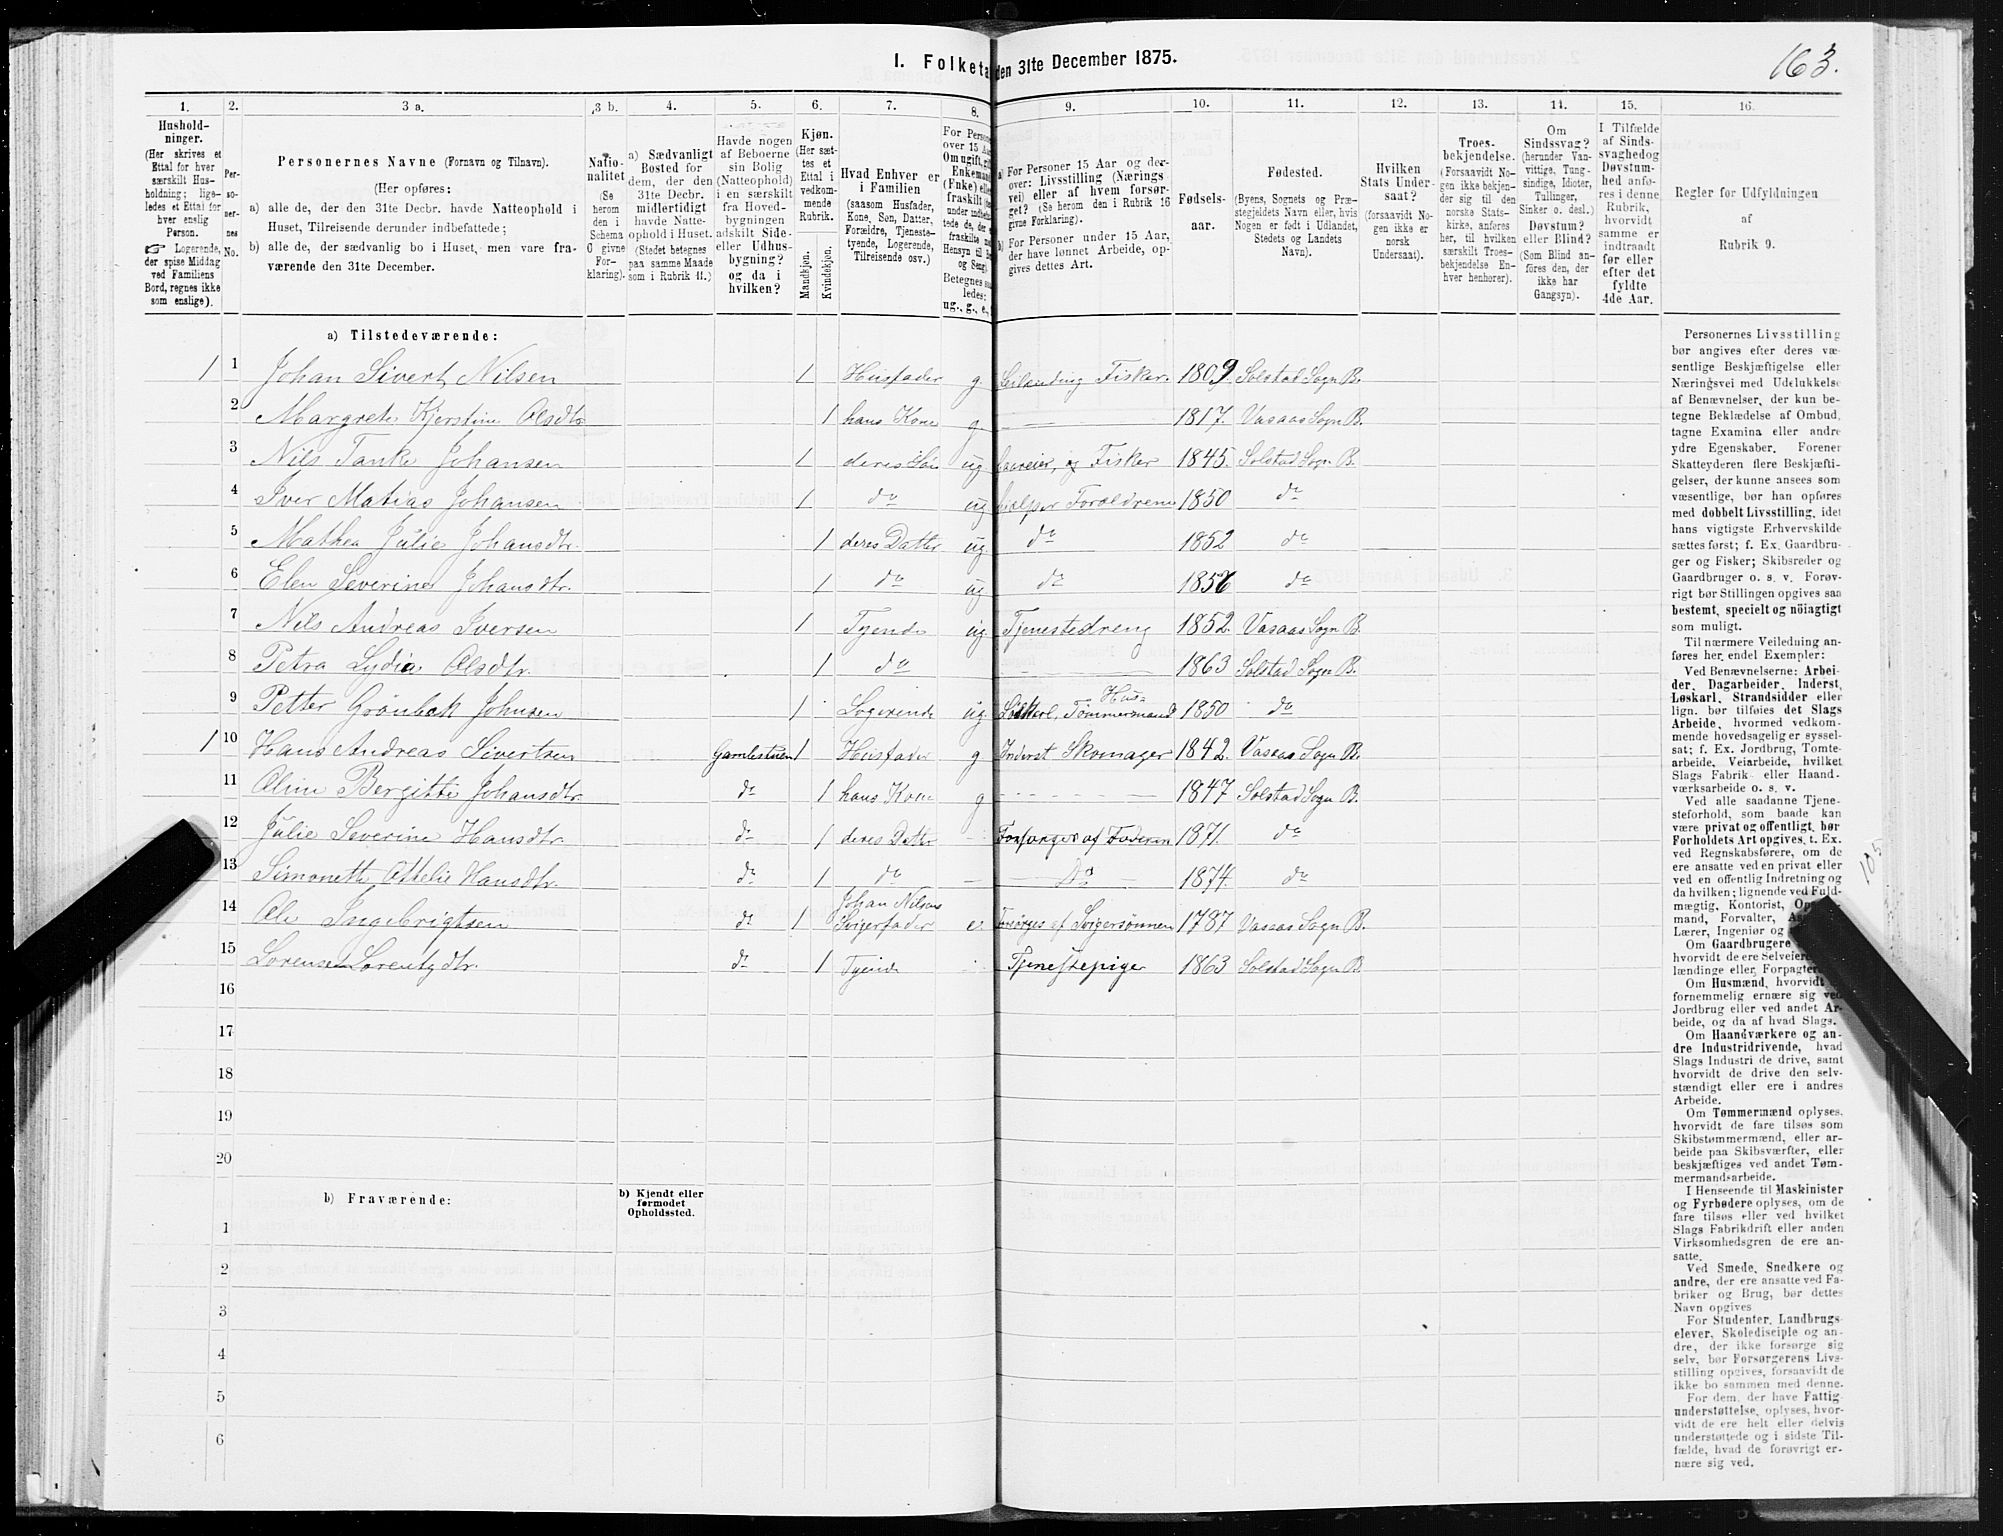 I. Folketa den 31te December 1875.
163.
1. 2. 3 a. 3 b. 4. 5. 6. 7. 8. 9. 10. 11. 12. 13. 14. 15. 16.
Hushold-
ninger.
(Her skrives et
Ettal for hver
særskilt Hus-
holdning; lige-
ledes et Ettal for
hver enslig
Person.
☞ Logerende,
der spise Middag
ved Familiens
Bord, regnes ikke
som enslige).
Per-
so-
ner-
nes
No.
Personernes Navne (Fornavn og Tilnavn).
(Her opføres:
a) alle de, der den 31te Decbr. havde Natteophold i
Huset, Tilreisende derunder indbefattede;
b) alle de, der sædvanlig bo i Huset, men vare fra-
værende den 31te December.
Natio-
nalitet
(Se
herom
den i
Schema
6 givne
For-
klaring).
a) Sædvanligt
Bosted for
dem, der den
31te Decbr.
midlertidigt
havde Natte-
Ophold i Huset.
(Stedet betegnes
paa samme Maade
som i Rubrik 11.)
Havde nogen
af Beboerne
sin Bolig
(Natteophold)
i en særskilt
fra Hoved-
bygningen
adskilt Side-
eller Udhus-
bygning?
og da i
hvilken?
Kjøn.
(Her sæt-
tes et
Ettal i
vedkom-
mende
Rubrik.
Mandkjøn.
Kvindekjøn.
Hvad Enhver er
i Familien
(saasom Husfader,
Kone, Søn, Datter,
Forældre, Tjeneste-
tyende, Logerende,
Tilreisende osv.)
For Person
over 15 Aa
Om ugift, gi
Enkeman
(Fnke) elle
fraskilt
Betegnes saa
ledes:
ug., g., e.,
a) For Personer 15 Aar og der-
over: Livsstilling (Nærings
vei) eller af hvem forsør-
get? (Se herom den i Rubrik 16
givne Forklaring).
b) For Personer under 15 Aar,
der have lønnet Arbeide, op-
gives dettes Art.
Fødsels-
aar.
Fødested.
(Byens, Sognets og Præ-
stegjeldets Navn eller, hvis
Nogen er født i Udlandet,
Stedets og Landets
Navn).
Hvilken
Stats Under-
saat?
(forsaavidt No-
gen ikke er
norsk
Undersaat).
Troes-
bekjendelse.
(Forsaavidt No-
gen ikke bekjen-
der sig til den
norske Stats-
kirke, anføres
her, til hvilken
særskilt Troes-
bekjendelse En-
hver henhører).
Om
Sindssvag?
(herunder Van-
vittige, Tung-
sindige, Idioter,
Tullinger,
Sinker o. desl.)
Døvstum?
eller Blind?
(Som Blind an-
føres den, der
ikke har
Gangsyn).
I Tilfælde
af Sinds-
svaghedog
Døvstum-
hed anfø-
res i denne
Rubrik,
hvorvidt
samme er
indtraadt
før eller
efter det
fyldte
4de Aar.
Regler for Udfyldningen
af
Rubrik 9.
a) Tilstedeværende:
1 1 Johan Sivert Nilsen 1 Husfader g. Leilending Fisker. 1809 Solstad Sogn B.
2 Margrete Kjerstine Olsdtr 1 hans Kone g 1817. Vasaas Sogn B.
3 Nils Tanke Johansen 1 deres Søn ug og Fisker 1845. Solstad Sogn B.
4 Iver Matias Johansen 1 do ug hielper Foraldrene 1850 do
5 Mathea Julie Johansdtr. 1 deres Datter ug. do 1852 do
6 Elen Severine Johansdtr. 1 do ug do 1856 do
7 Nils Andreas Iversen 1 Tyende ug. Tjenestedreng 1852. Vasaas Sogn B.
8 Petra Lydia Olsdtr. 1 do 1863 Solstad Sogn B.
9 Petter Grønbek Johnsen 1 Logerende ug. Løskarl, Hus= Tømmersmand 1850 do
1 10 Hans Andreas Sivertsen Gamlestuen 1 Husfader g Inderst Skomager 1842. Vasaas Sogn B.
11 Oline Bergitte Johansdtr. do 1 hans Kone g 1847 Solstad Sogn B.
12 Julie Severine Hansdtr. do 1 deres Datter Forsørges af Faderen 1871. do
13 Simonette Othelie Hansdtr. do 1 do Do 1874. do
14 Ole Ingebrigtsen do 1 Johan Nilsens Svigerfader e. Forsørges af Svigersønnen 1787 Vasaas Sogn B.
15 Lorense Lorentzdtr. do 1 Tyende Tjenestepige 1863 Solstad Sogn B.
16
17
18
19
20
b) Fraværende:
b) Kjendt eller
formodet
Opholdssted.
1
2
3
4
5
6
Personernes Livsstilling
bør angives efter deres væ-
sentlige Beskjæftigelse eller
Næringsvei med Udelukkelse
af Benævnelser, der kun be-
tegne Beklædelse af Ombud,
tagne Examina eller andre
ydre Egenskaber. Forener
Skatteyderen flere Beskjæfti-
gelser, der kunne ansees som
væsentlige, bør han opføres
med dobbelt Livsstilling, idet
hans vigtigste Erhvervskilde
sættes først; f. Ex. Gaardbru-
ger og Fisker; Skibsreder og
Gaardbruger o. s. v. Forøv-
rigt bør Stillingen opgives saa
bestemt, specielt og nöiagtigt
som muligt.
Til nærmere Veiledning an-
føres her endel Exempler:
Ved Benævnelserne: Arbei-
der, Dagarbeider, Inderst,
Løskarl, Strandsidder eller
lign. bør tilføies det Slags
Arbeide, hvormed vedkom-
mende hovedsagelig er syssel-
sat; f. Ex. Jordbrug, Tomte-
arbeide, Veiarbeide, hvilket
Slags Fabrik- eller Haand-
værksarbeide o. s. v.
Ved alle saadanne Tjene-
steforhold, som baade kan
være privat og offentligt, bør
Forholdets Art opgives, t. Ex.
ved Regnskabsførere, om de
ere ansatte ved en privat eller
ved en offentlig Indretning og
da hvilken; lignende ved Fuld-
mægtig, Kontorist,
mand, Forvalter,
Lærer, Ingeniør og
Om Gaardbrugere
hvorvidt de ere Selveiere
lændinge eller Forpagtere
Om Husmænd, hvorvidt
fornemmelig ernære sig ved
Jordbrug eller ved andet Ar-
beide, og da af hvad Slags.
Om Haandværkere og an-
dre Industridrivende, hvad
Slags Industri de drive, samt
hvorvidt de drive den selv-
stændigt eller ere i andres
Arbeide.
Om Tømmermænd oplyses,
hvorvidt de fare tilsøs som
Skibstømmermænd, eller ar-
beide paa Skibsværfter, eller
beskjæftiges ved andet Tøm-
mermandsarbeide.
I Henseende til Maskinister
og Fyrbødere oplyses, om de
fare tilsøs eller ved hvilket
Slags Fabrikdrift eller anden
Virksomhedsgren de ere an-
satte.
Ved Smede, Snedkere og
andre, der ere ansatte ved Fa-
briker og Brug, bør dettes
Navn opgives
For Studenter, Landbrugs-
elever, Skoledisciple og an-
dre, der ikke forsørge sig
selv, bør Forsørgerens Livs-
stilling opgives, forsaavidt de
ikke bo sammen med denne.
For dem, der have Fattig
understøttelse, oplyses, hvor-
vidt de ere helt eller delvis
understøttede og i sidste Til-
fælde, hvad de forøvrigt er-
nære sig ved.
105